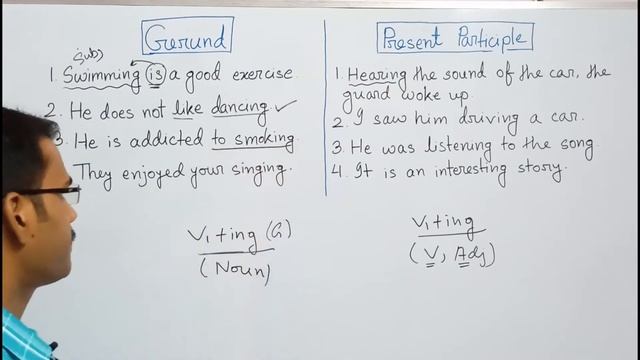 Gerund
Subj
1. Swimming is a good exercise.
2. He does not like dancing. ✓
3. He is addicted to smoking.
They enjoyed your singing.
V₁ + ing (G)
(Noun)
Present Participle
1. Hearing the sound of the car, the
guard woke up.
2. I saw him driving a car.
3. He was listening to the song.
4. It is an interesting story.
V₁ + ing
(V, Adj)